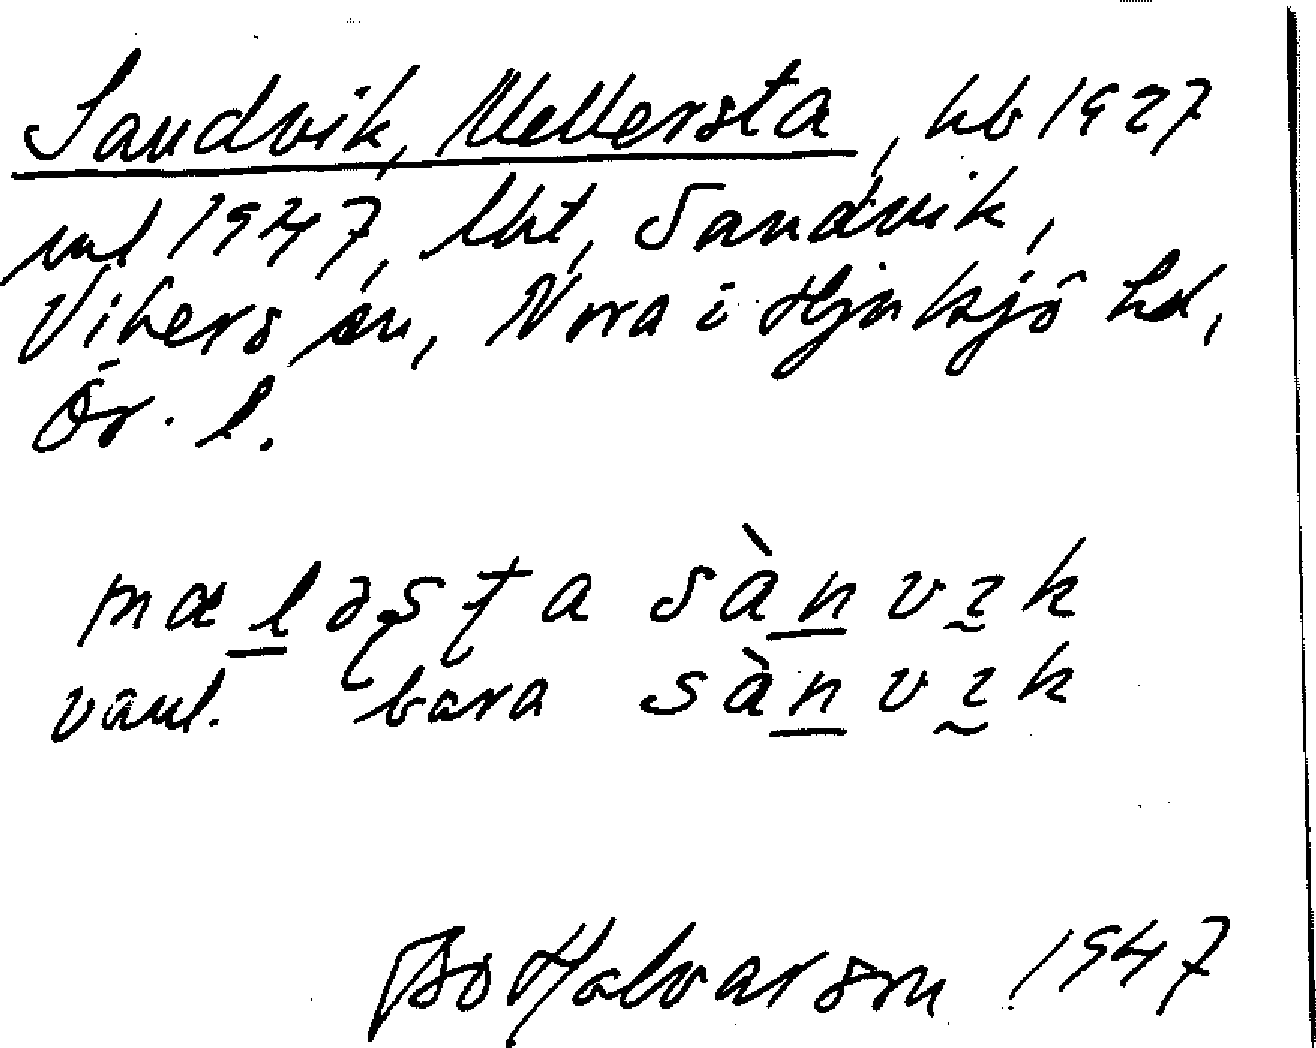 Sandvik, Mellersta, hb 1927
ml 1947, lht, Sandvik,
Vikers sn, Nora i Hjulsjö hd,
Ör. l.
mæləşţa sànvɪk
vanl. bara sànvɪk
Bo Halvarson 1947